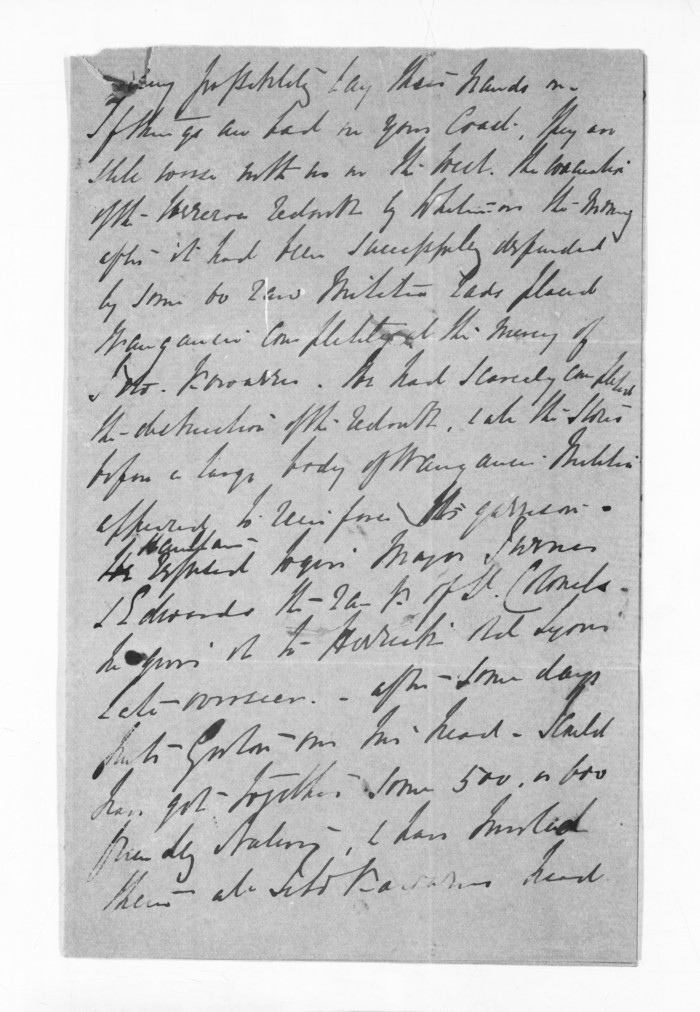 any possibility lay their hands on.
If things are bad on your Coast, they are
still worse with us on the West. The evacuation
of the redoubt by Whitmore the morning
after it had been successfully defended
by some 60 raw Militia lads placed
Wanganui completely at the mercy of
Tito Kowarru. He had scarcely completed
the destruction of the redoubt, & all the stores
before a large body of Wanganui Militia
appeared to reinforce the garrison -
Haultain
refused to give Major Turner
& Edwards the rank of Lt. Colonels -
he gives it to Herrick Lyons
late overseer. - after some days
puts on his head - I could
have got together some 500, or 600
friendly Natives, & have hurled
them at Tito Kowarrus head